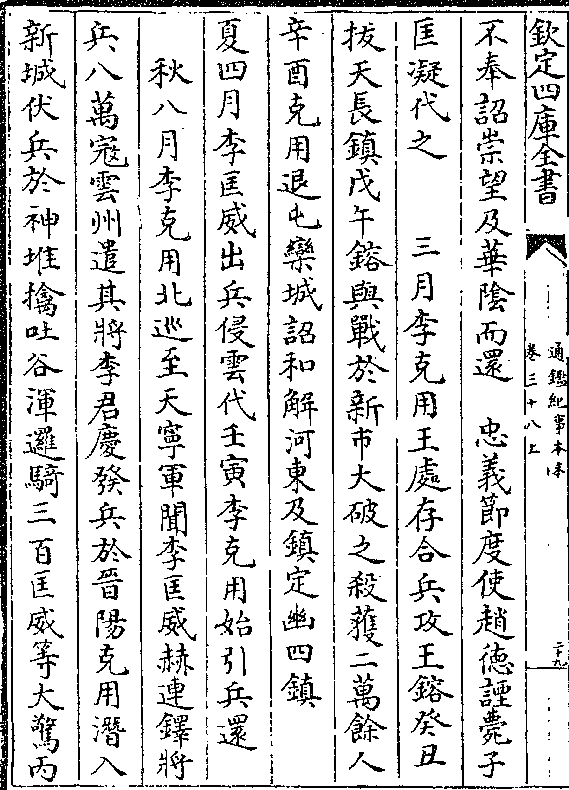 欽定四庫全書
通鑑紀事本末
卷三十八上
二十九
不奉詔崇望及華陰而還　忠義節度使趙德諲薨子
匡凝代之　三月李克用王處存合兵攻王鎔癸丑
拔天長鎮戊午鎔與戰於新市大破之殺獲二萬餘人
辛酉克用退屯欒城詔和解河東及鎮定幽四鎮
夏四月李匡威出兵侵雲代壬寅李克用始引兵還
秋八月李克用北巡至天寧軍聞李匡威赫連鐸將
兵八萬寇雲州遣其將李君慶發兵於晉陽克用潛入
新城伏兵於神堆擒吐谷渾邏騎三百匡威等大驚丙